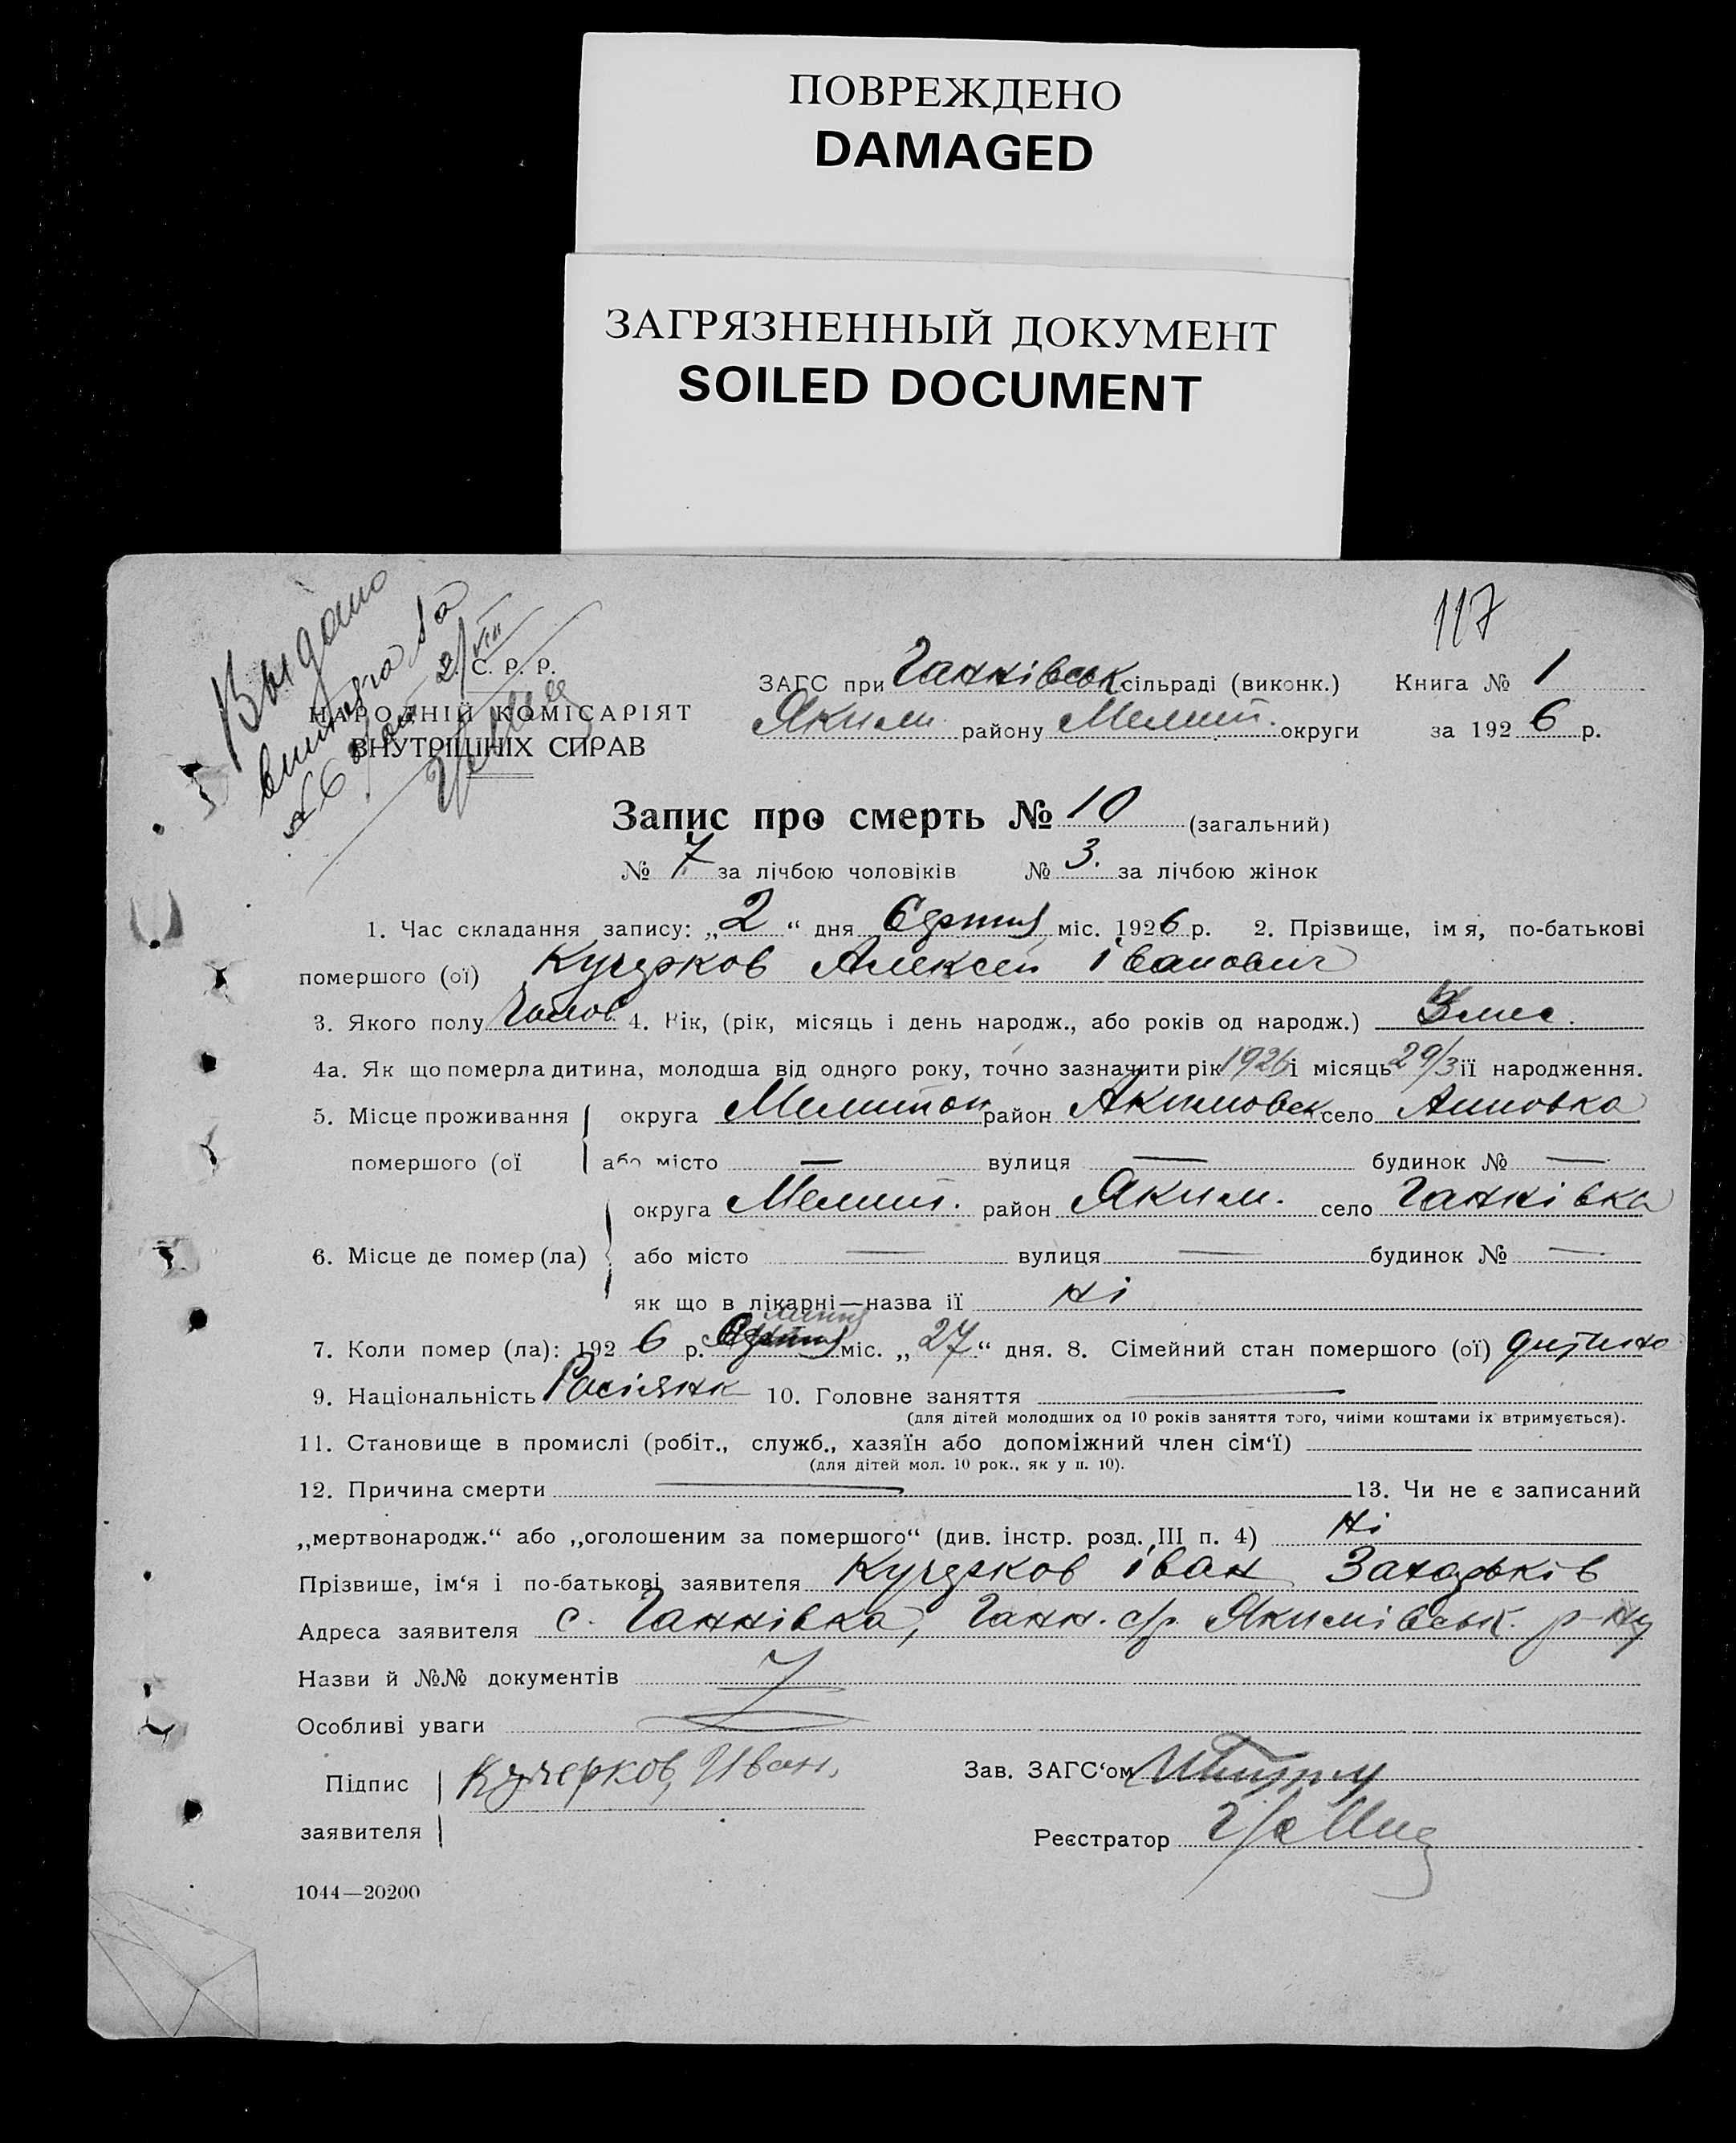 ПОВРЕЖДЕНО
DAMAGED
ЗАГРЯЗНЕННЫЙ ДОКУМЕНТ
SOILED DOCUMENT
117
Выдано
С. Р. Р.
НАРОДНІЙ КОМІСАРІЯТ
ВНУТРІШНІХ СПРАВ
ЗАГС при Ганнівськ сільраді (виконк.) Книга № 1
Яким. району Мелит. округи за 1926 р.
Запис про смерть № 10 (загальний)
№ 7 за лічбою чоловіків № 3. за лічбою жінок
1. Час складання запису: „2“ дня Серпня міс. 1926 р. 2. Прізвище, імя, по-батькові
помершого (ої) Кучерков Алексей Іванович
3. Якого полу Чолов. 4. Вік, (рік, місяць і день народж., або років од народж.) 3 мес.
4а. Як що померла дитина, молодша від одного року, точно зазначити рік 1926 і місяць 29/3 її народження.
5. Місце проживання округа Мелитоп район Акимовск село Анновка
помершого (ої або місто — вулиця — будинок № —
округа Мелит. район Яким. село Ганнівка
6. Місце де помер (ла) або місто — вулиця — будинок № —
як що в лікарні—назва її ні
7. Коли помер (ла): 1926 р. липня міс. „27“ дня. 8. Сімейний стан помершого (ої) дитина
9. Національність Росіянин 10. Головне заняття —
(для дітей молодших од 10 років заняття того, чиїми коштами їх втримується).
11. Становище в промислі (робіт., служб., хазяїн або допоміжний член сім‘ї) —
(для дітей мол. 10 рок., як у п. 10).
12. Причина смерти — 13. Чи не є записаний
„мертвонародж.“ або „оголошеним за помершого“ (див. інстр. розд. III п. 4) ні
Прізвише, ім‘я і по-батькові заявителя Кучерков Іван
Адреса заявителя с. Ганнівка, Ганн. с/р Якимівськ. р-ну
Назви й №№ документів
Особливі уваги
Підпис Кучерков Иван Зав. ЗАГС‘ом
заявителя
Реєстратор
1044—20200